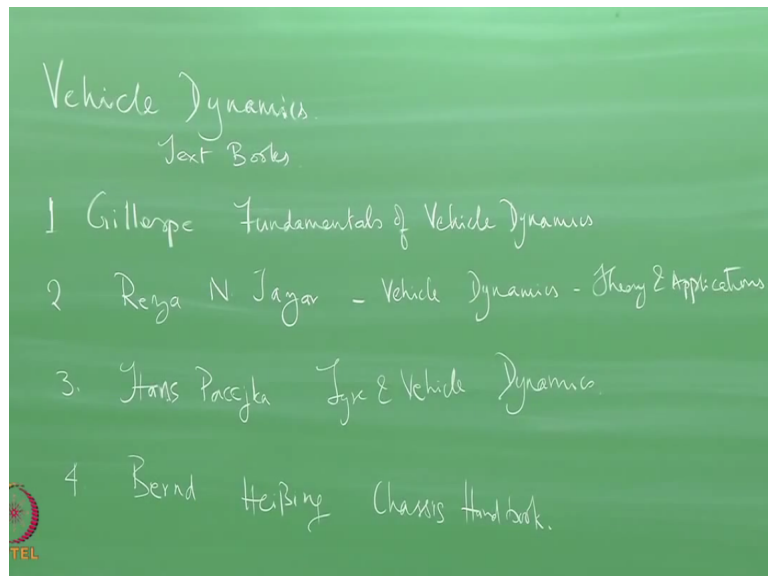 Vehicle Dynamics.
Text Books
1 Gillespe Fundamentals of Vehicle Dynamics
2 Reza N. Jazar - Vehicle Dynamics - Theory & Applications
3. Hans Paccjka Tyre & Vehicle Dynamics.
4 Bernd Heißing Chassis Handbook.
TEL